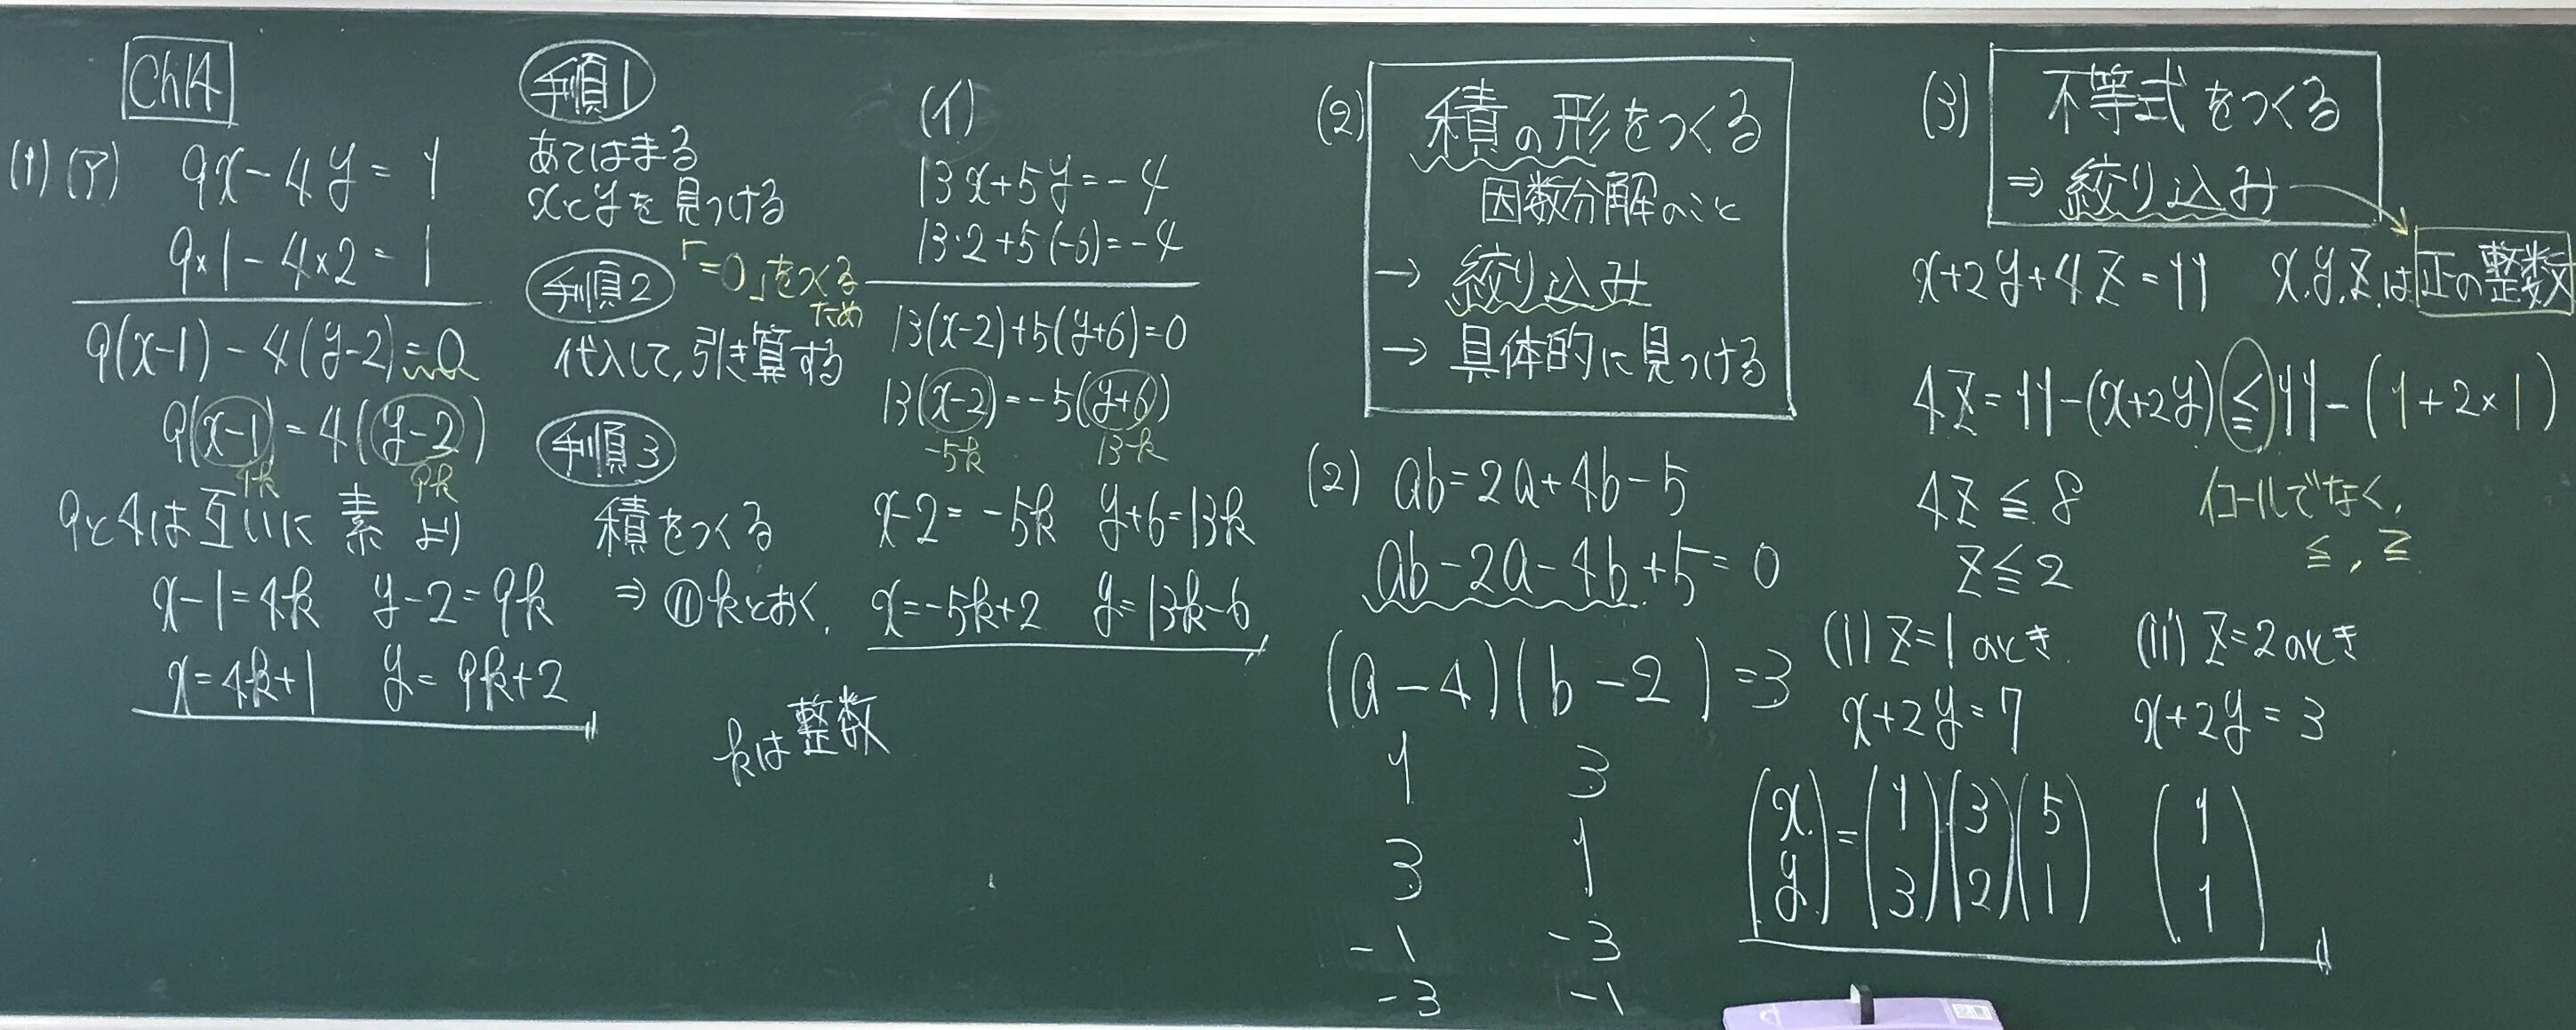 Ch14
(1) (ア) 9x-4y=1
9×1-4×2=1
9(x-1)-4(y-2)=0
9(x-1)=4(y-2)
4k 9k
9と4は互いに素より
x-1=4k y-2=9k
x=4k+1 y=9k+2
手順1
あてはまる
xとyを見つける
手順2
「=0」をつくる
ため
代入して,引き算する
手順3
積をつくる
⇒ ⑪kとおく,
kは整数
(イ)
13x+5y=-4
13・2+5(-6)=-4
13(x-2)+5(y+6)=0
13(x-2)=-5(y+6)
-5k 13k
x-2=-5k y+6=13k
x=-5k+2 y=13k-6
(2) 積の形をつくる
因数分解のこと
→ 絞り込み
→ 具体的に見つける
(2) ab=2a+4b-5
ab-2a-4b+5=0
(a-4)(b-2)=3
1 3
3 1
-1 -3
-3 -1
(3) 不等式をつくる
⇒ 絞り込み
x+2y+4z=11 x,y,zは正の整数
4z=11-(x+2y)≦11-(1+2×1)
4z≦8
z≦2
イコールでなく,
≦,≧
(i) z=1のとき
x+2y=7
(ii) z=2のとき
x+2y=3
(x y)=(1 3)(3 2)(5 1) (1 1)